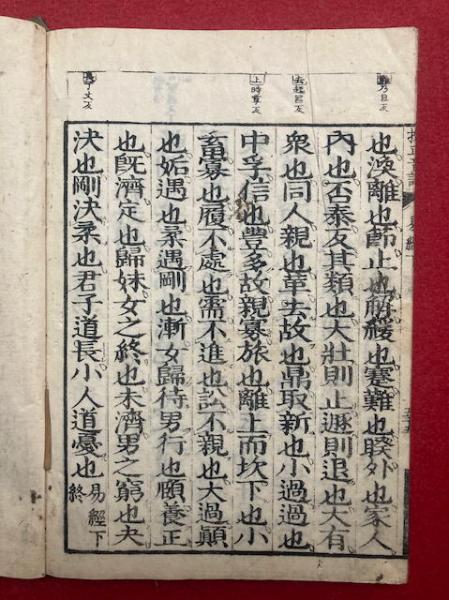 難乃旦反
去起呂反
上時掌反
長丁丈反
易經
也渙離也節止也解緩也蹇難也睽外也家人
內也否泰反其類也大壯則止遯則退也大有
衆也同人親也革去故也鼎取新也小過過也
中孚信也豐多故親寡旅也離上而坎下也小
畜寡也履不處也需不進也訟不親也大過顛
也姤遇也柔遇剛也漸女歸待男行也頤養正
也旣濟定也歸妹女之終也未濟男之窮也夬
決也剛決柔也君子道長小人道憂也 易經下終